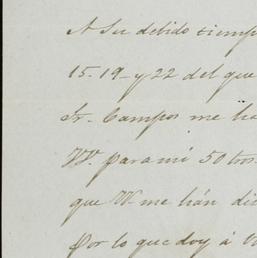 A Su debido tiempo
15-19- y 22 del que
Sr. Campos me ha
V. para mi 50 tos.
que V. me hán di
Por lo que doy á V